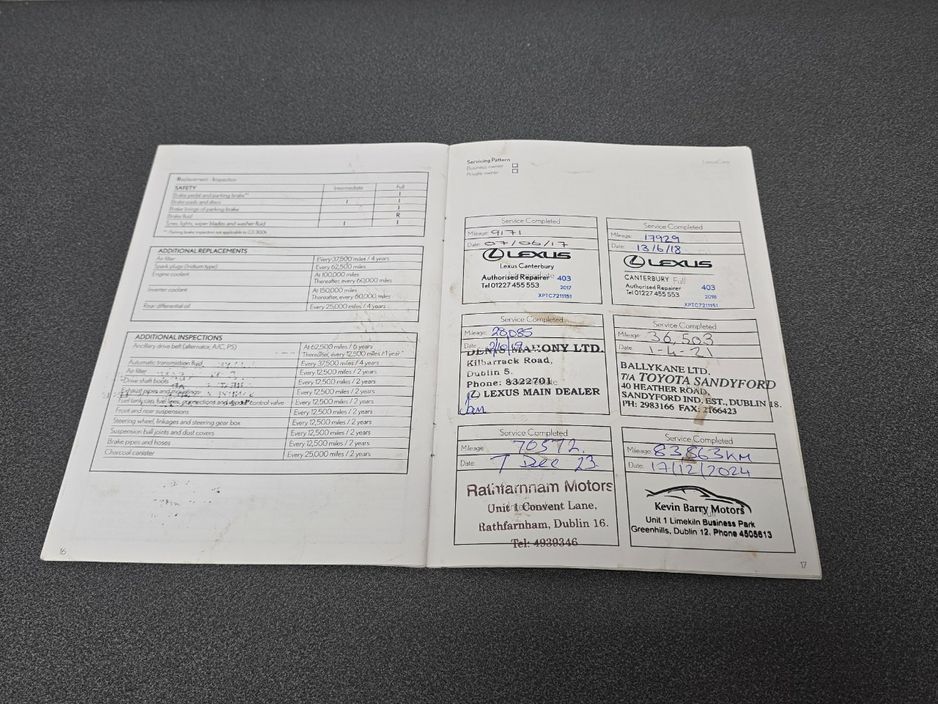 Replacement / Inspection
SAFETY Intermediate Full
Brake pedal and parking brake** I
Brake pads and discs I I
Brake linings of parking brake I
Brake fluid R
Tyres, lights, wiper blades and washer fluid I I
ADDITIONAL REPLACEMENTS
Air filter Every 37,500 miles / 4 years
Spark plugs (Iridium type) Every 62,500 miles
Engine coolant At 100,000 miles
Thereafter, every 60,000 miles
Inverter coolant At 150,000 miles
Thereafter, every 60,000 miles
Rear differential oil Every 25,000 miles / 4 years
ADDITIONAL INSPECTIONS
Ancillary drive belt (alternator, A/C, PS) At 62,500 miles / 6 years
Thereafter, every 12,500 miles / 1 year
Automatic transmission fluid Every 37,500 miles / 4 years
Air filter Every 12,500 miles / 2 years
Drive shaft boots Every 12,500 miles / 2 years
Exhaust pipes and mountings Every 12,500 miles / 2 years
Fuel tank cap, fuel lines, connections and vapour control valve Every 12,500 miles / 2 years
Front and rear suspensions Every 12,500 miles / 2 years
Steering wheel, linkages and steering gear box Every 12,500 miles / 2 years
Suspension ball joints and dust covers Every 12,500 miles / 2 years
Brake pipes and hoses Every 12,500 miles / 2 years
Charcoal canister Every 25,000 miles / 2 years
16
Servicing Pattern
Business owner
Private owner
Service Completed
Mileage: 9171
Date: 07/06/17
LEXUS
Lexus Canterbury
Authorised Repairer 403
Tel 01227 455 553 2017
XPTC7211151
Service Completed
Mileage: 17929
Date: 13/6/18
LEXUS
CANTERBURY Full
Authorised Repairer 403
Tel 01227 455 553 2018
XPTC7211151
Service Completed
Mileage: 28085
Date:
DENIS MAHONY LTD.
Kilbarrack Road,
Dublin 5.
Phone: 8322701
LEXUS MAIN DEALER
Service Completed
Mileage: 36,503
Date: 1-4-21
BALLYKANE LTD.
T/A TOYOTA SANDYFORD
40 HEATHER ROAD,
SANDYFORD IND. EST., DUBLIN 18.
PH: 2983166 FAX: 2166423
Service Completed
Mileage: 70572
Date: 7 Dec 23
Rathfarnham Motors
Unit 1 Convent Lane,
Rathfarnham, Dublin 16.
Tel: 4939346
Service Completed
Mileage: 83863KM
Date: 17/12/2024
Kevin Barry Motors
Unit 1 Limekiln Business Park
Greenhills, Dublin 12. Phone 4505613
17